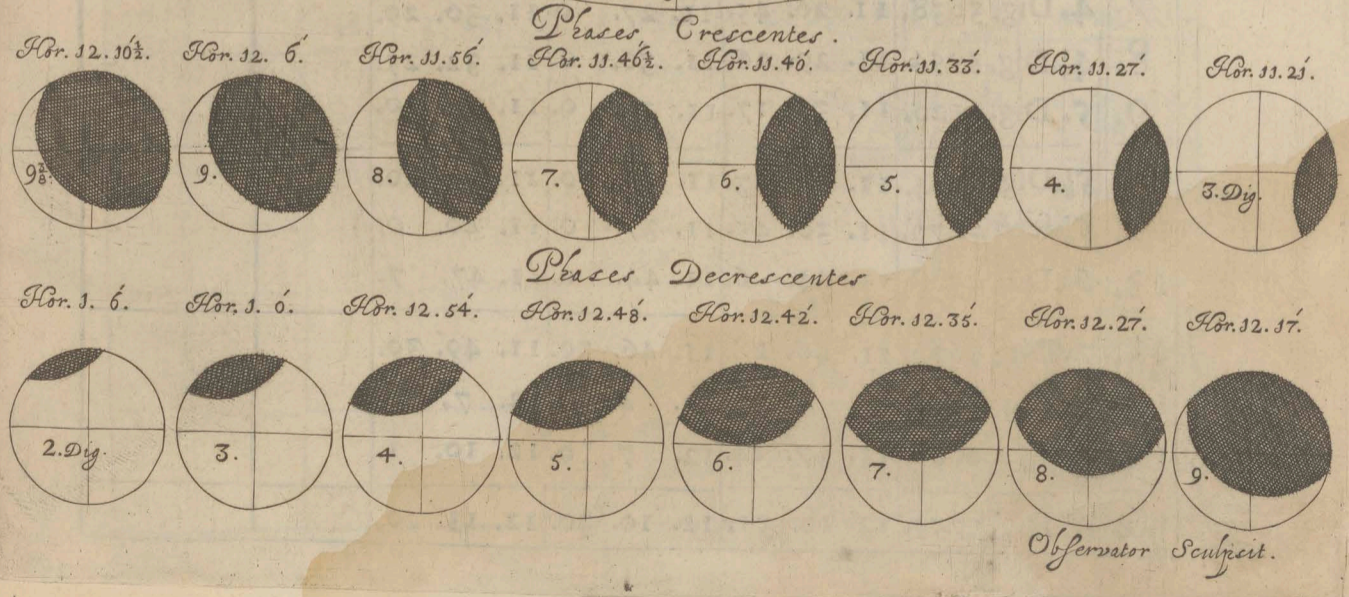 Phases Crescentes.
Hor. 12. 10½. Hor. 12. 6́. Hor. 11. 56́. Hor. 11. 46́½. Hor. 11. 40́. Hor. 11. 33́. Hor. 11. 27́. Hor. 11. 21́.
9⅜. 9. 8. 7. 6. 5. 4. 3. Dig.
Phases Decrescentes
Hor. 1. 6́. Hor. 1. 0́. Hor. 12. 54́. Hor. 12. 48́. Hor. 12. 42́. Hor. 12. 35́. Hor. 12. 27́. Hor. 12. 17́.
2. Dig. 3. 4. 5. 6. 7. 8. 9.
Observator Sculpsit.